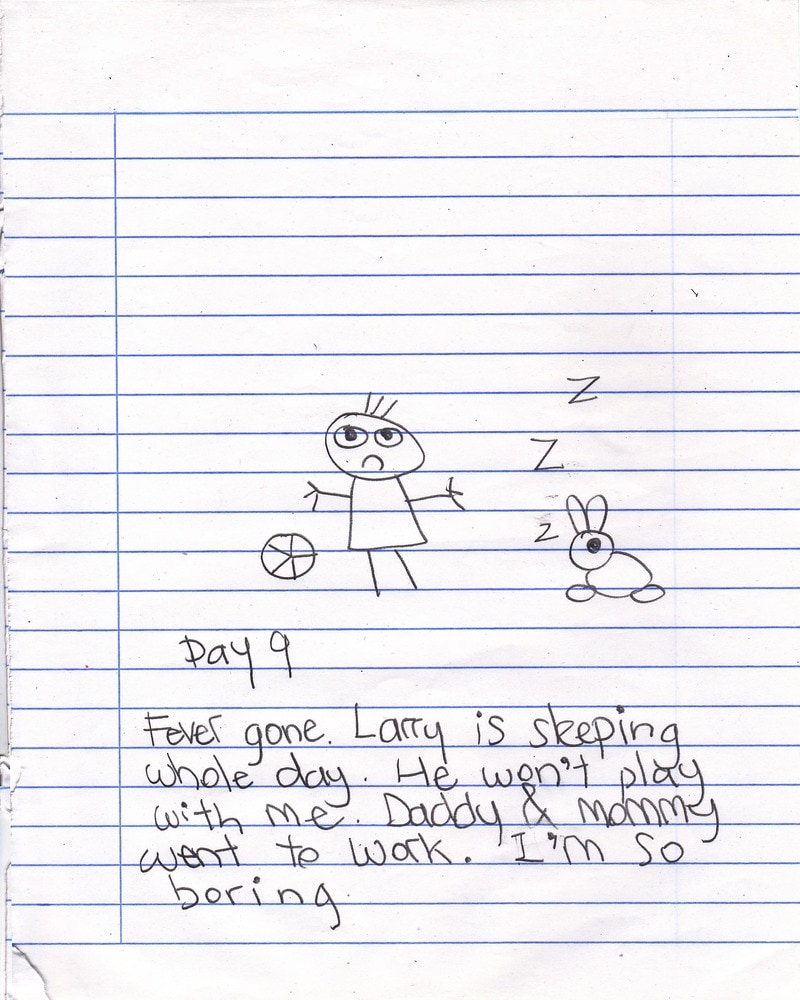 Z
Z
z
Day 9
Fever gone. Larry is skeping
whole day. He won't play
with me. Daddy & mommy
went to work. I'm so
boring.